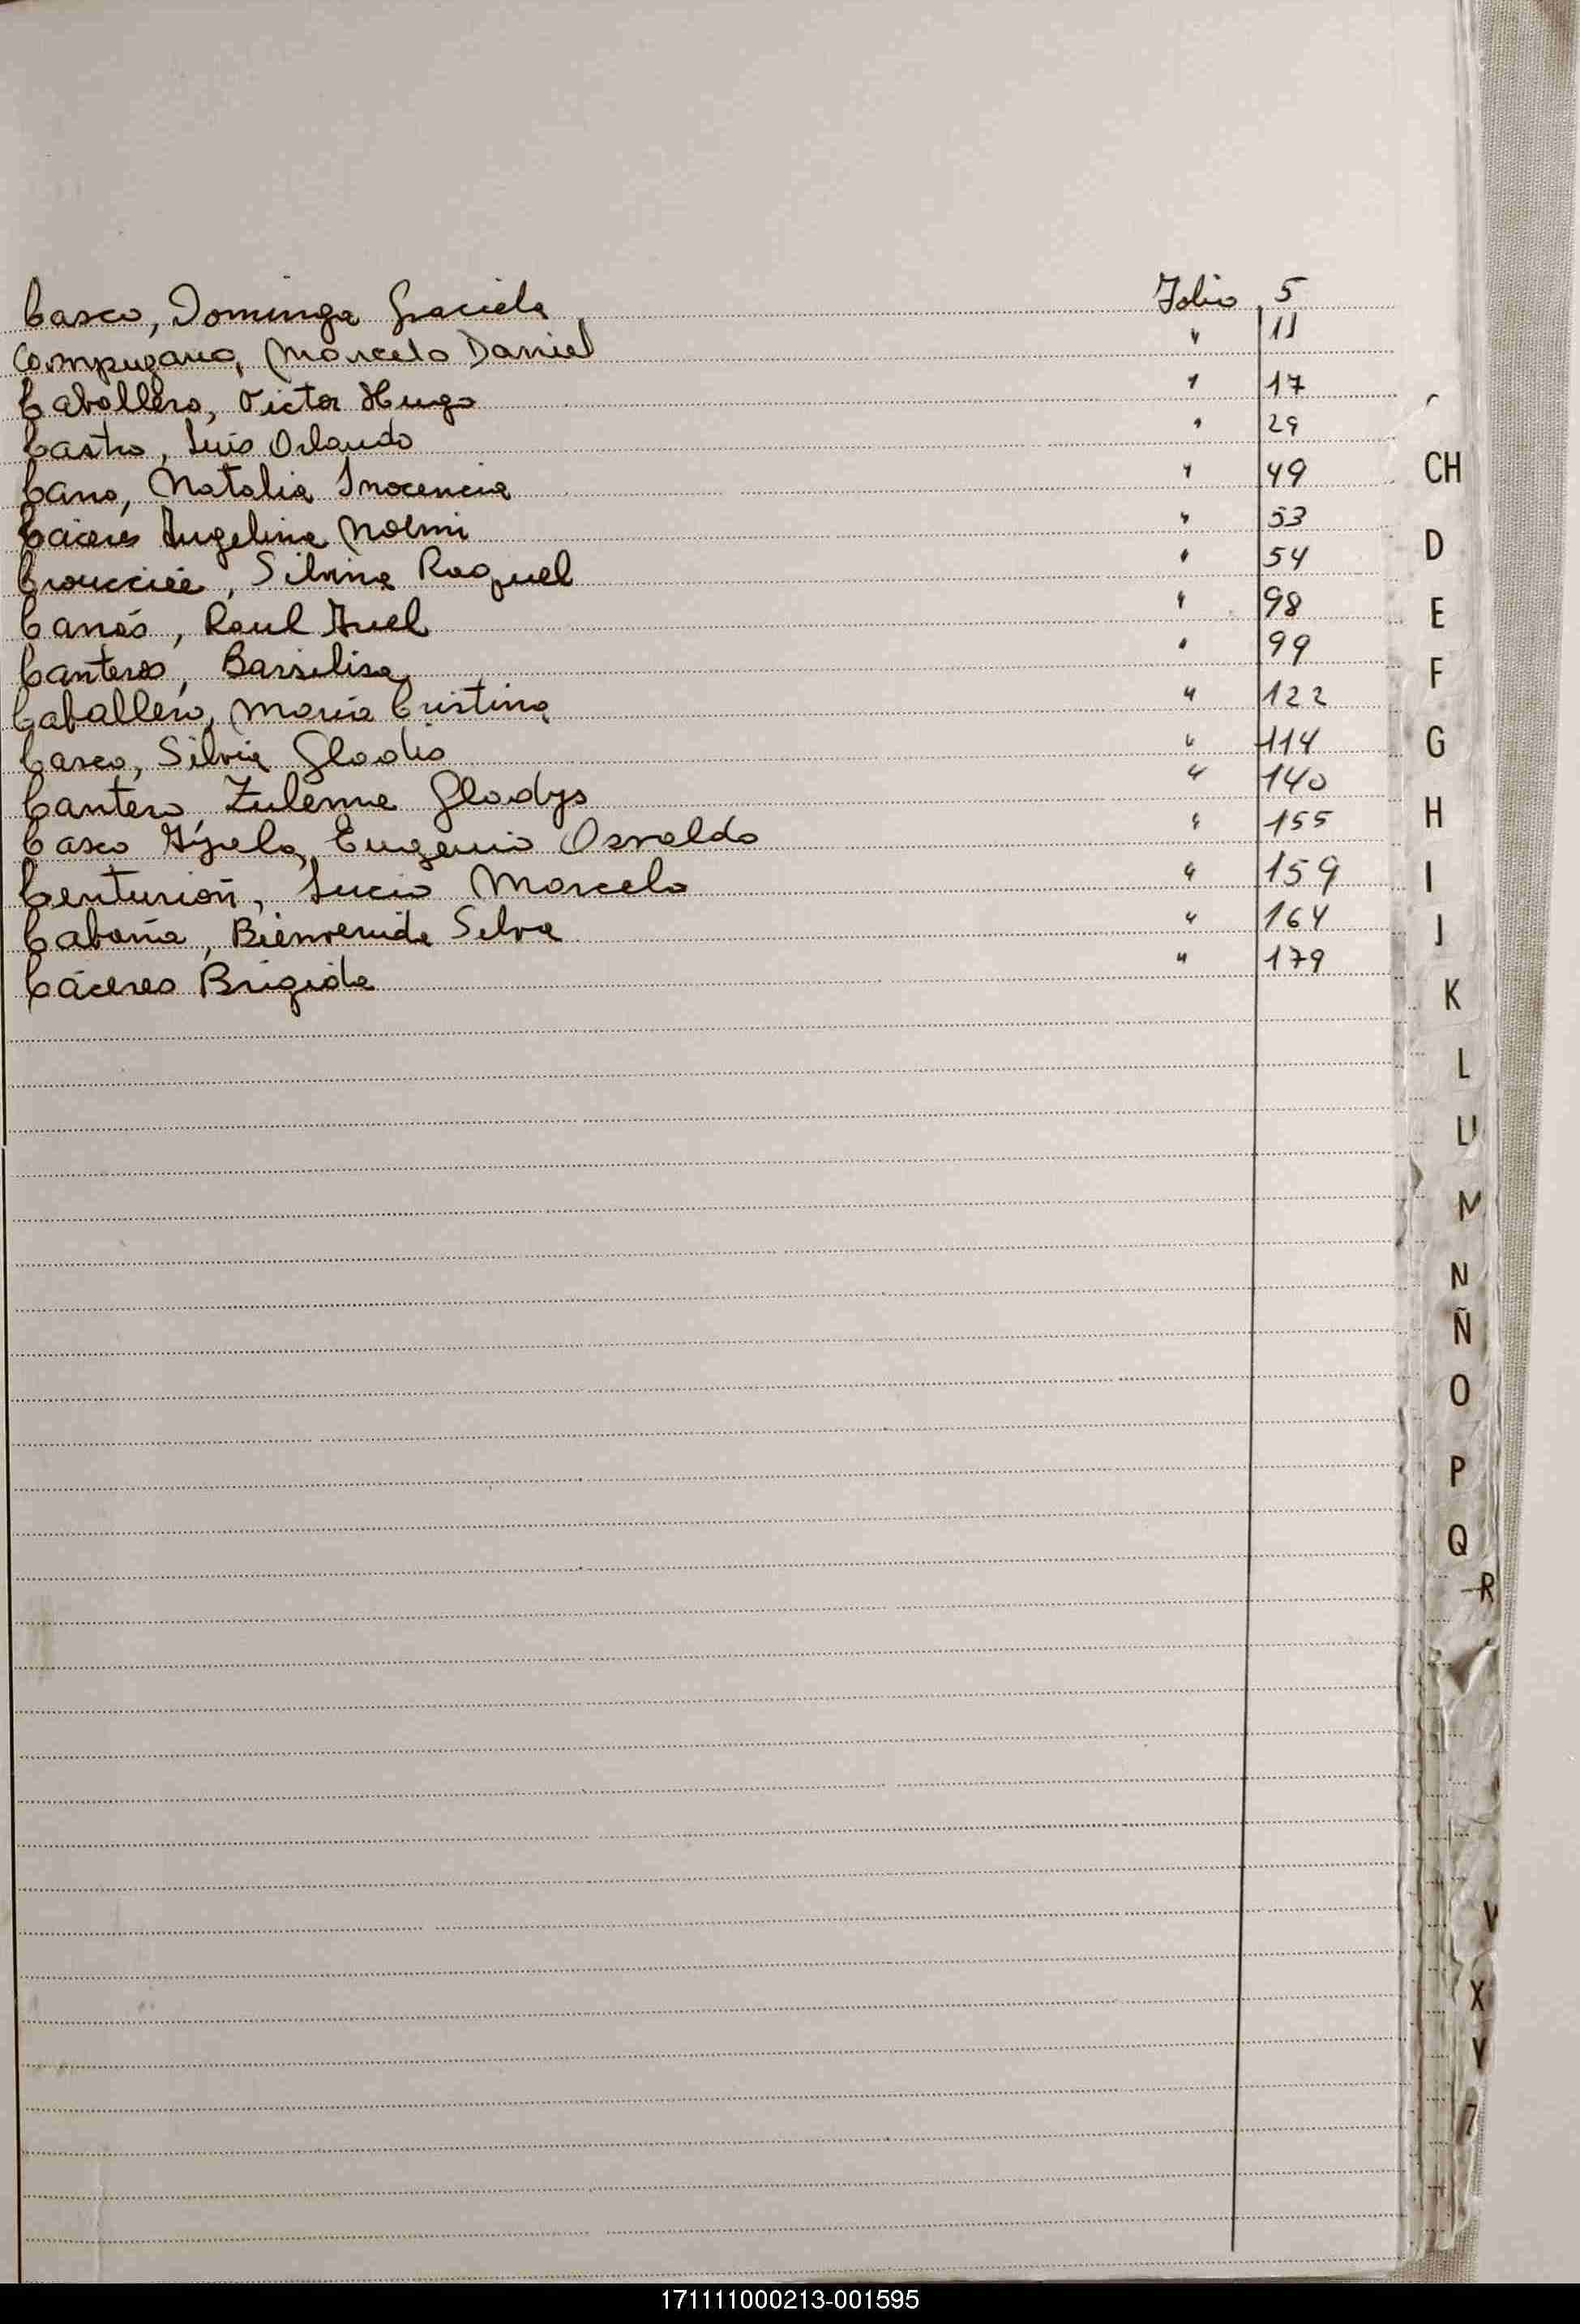 Casco, Dominga Graciela Folio 5
Campuzano, Marcelo Daniel " 11
Caballero, Victor Hugo " 17
Castro, Luis Orlando " 29
Cano, Natalia Inocencia " 49
Cáceres Angelina Noemi " 53
Silvina Raquel " 54
Raul " 98
Canteros, Bassilisa " 99
Caballero, María Cristina " 122
Casco, Silvia Gladis " 114
Cantero, Zulema Gladys " 140
Casco Ayala, Eugenio Osvaldo " 155
Centurión, Lucio Marcelo " 159
Cabaña, Bienvenida Selva " 164
Cáceres Brigida " 179
CH
D
E
F
G
H
I
J
K
L
M
N
Ñ
O
P
Q
R
V
X
171111000213-001595